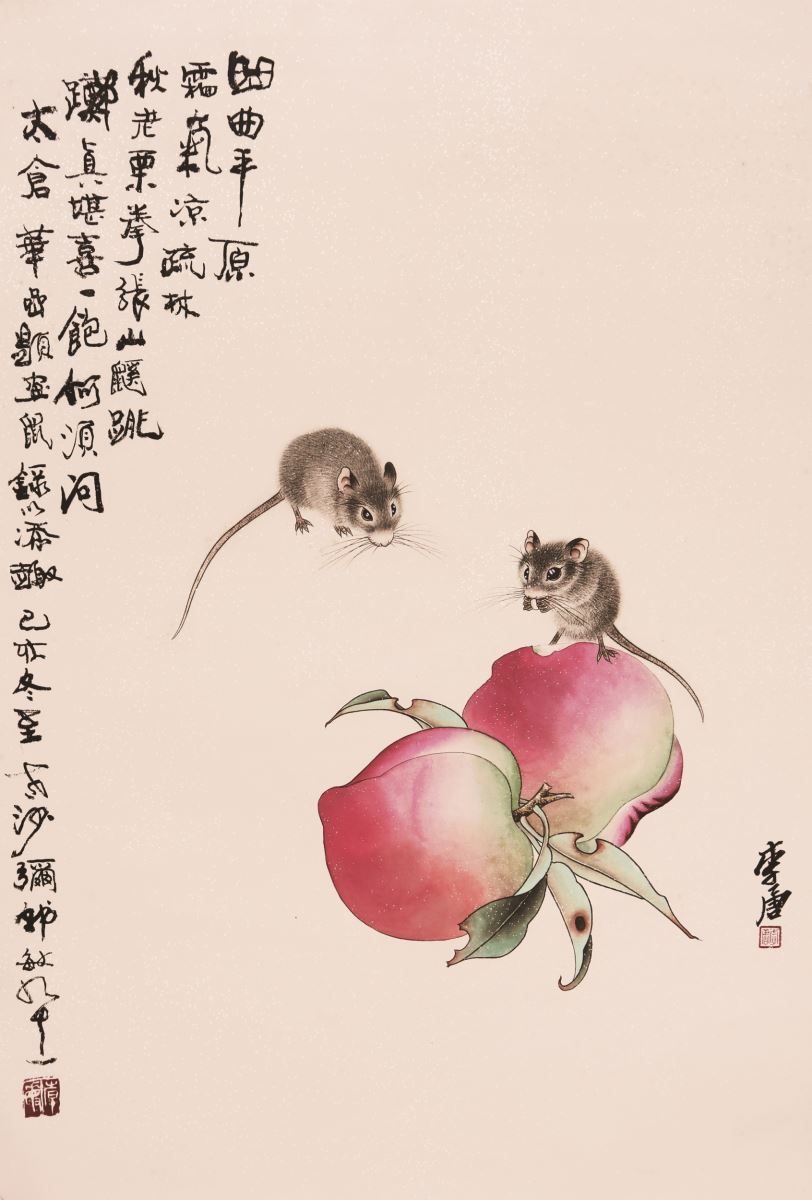 曲平原
霜氣凉疏林
秋老栗拳張山鼷跳
躑真堪喜一飽何須問
太倉 華嵒題畫鼠錄以添趣 己亥冬至 沙彌
李唐